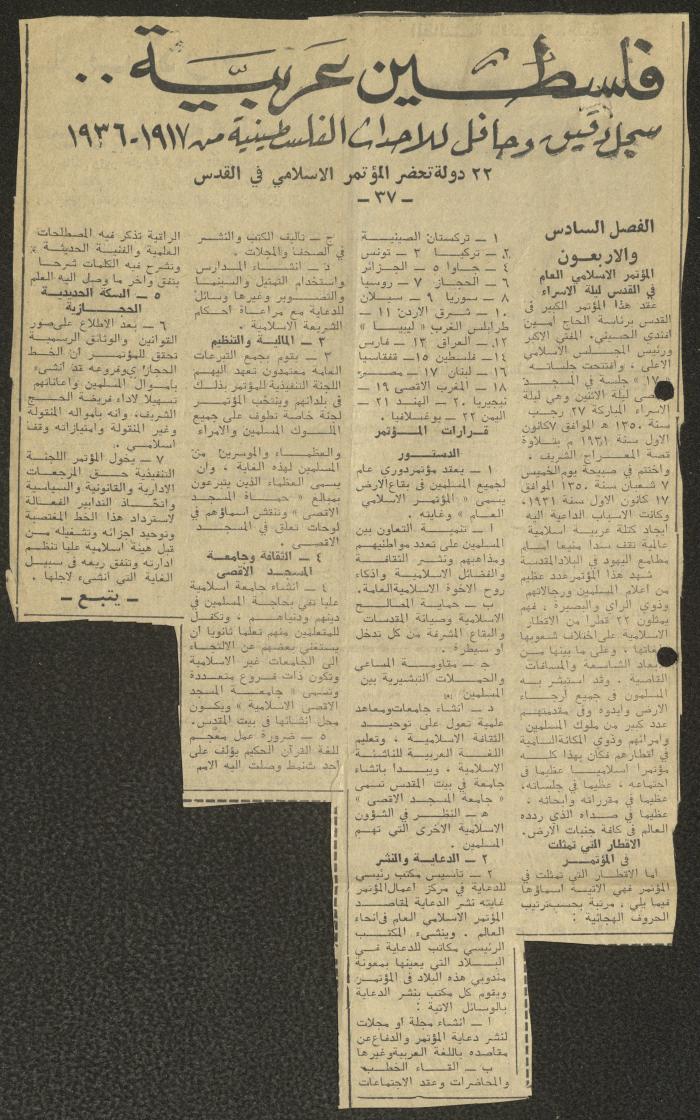 فلسطين عربية ..
سجل دقيق وحافل للاحداث الفلسطينية من ١٩١٧-١٩٣٦
٢٢ دولة تحضر المؤتمر الاسلامي في القدس
- ٣٧ -
الفصل السادس
والاربعون
المؤتمر الاسلامي العام
في القدس ليلة الاسراء
عقد هذا المؤتمر الكبير في
القدس برئاسة الحاج امين
افندي الحسيني، المفتي الاكبر
ورئيس المجلس الاسلامي
الاعلى ، وافتتحت جلساته
« ١٧ » جلسة في المسجد
ليلة الاثنين وهي ليلة
الاسراء المباركة ٢٧ رجب
سنة ١٣٥٠ هـ الموافق ٧كانون
الاول سنة ١٩٣١ م بتلاوة
قصة المعراج الشريف .
واختتم في صبيحة يوم الخميس
٧ شعبان سنة ١٣٥٠ الموافق
١٧ كانون الاول سنة ١٩٣١.
وكانت الاسباب الداعية اليه
ايجاد كتلة عربية اسلامية
عالمية تقف سدا منيعا امام
مطامع اليهود في البلاد المقدسة
شهد هذا المؤتمر عدد عظيم
من اعلام المسلمين ورجالاتهم
وذوي الراي والبصيرة ، فهم
يمثلون ٢٢ قطرا من الاقطار
الاسلامية على اختلاف شعوبها
، وعلى ما بينها من
الشاسعة والمسافات
القاصية . وقد استبشر به
المسلمون في جميع ارجاء
الارض وايدوه وفي مقدمتهم
عدد كبير من ملوك المسلمين
وامرائهم وذوي المكانة السامية
في اقطارهم فكان بهذا كله
مؤتمرا اسلاميا عظيما في
اجتماعه ، عظيما في جلساته،
عظيما في مقرراته وابحاثه ،
عظيما في صداه الذي ردده
العالم في كافة جنبات الارض.
الاقطار التي تمثلت
في المؤتمر
اما الاقطار التي تمثلت في
المؤتمر فهي الاتية اسماؤها
فيما يلي ، مرتبة بحسب ترتيب
الحروف الهجائية :
١ - تركستان الصينية
٢- تركيا ٣ - تونس
٤ - جاوا ٥ - الجزائر
٦ - الحجاز ٧ - روسيا
٨ - سوريا ٩ - سيلان
١٠ - شرق الاردن ١١ -
طرابلس الغرب « ليبيا »
١٢- العراق ١٣ - فارس
١٤ - فلسطين ١٥- قفقاسيا
١٦- لبنان ١٧ - مصر
١٨ - المغرب الاقصى ١٩ -
نيجيريا ٢٠ - الهند ٢١ -
اليمن ٢٢ - يوغسلافيا .
قرارات المؤتمر
الدستور
١ - يعقد مؤتمر دوري عام
لجميع المسلمين في بقاع الارض
يسمى « المؤتمر الاسلامي
العام » وغايته .
ا - تنمية التعاون بين
المسلمين على تعدد مواطنيهم
ومذاهبهم ونشر الثقافة
والفضائل الاسلامية واذكاء
روح الاخوة الاسلامية العامة.
ب - حماية المصالح
الاسلامية وصيانة المقدسات
والبقاع المشرفة من كل تدخل
او سيطرة .
ج - مقاومة المساعي
والحملات التبشيرية بين
المسلمين
د - انشاء جامعات ومعاهد
علمية تعول على توحيد
الثقافة الاسلامية ، وتعليم
اللغة العربية للناشئة
الاسلامية ، ويبدا بانشاء
جامعة في بيت المقدس تسمى
« جامعة المسجد الاقصى »
هـ - النظر في الشؤون
الاسلامية الاخرى التي تهم
المسلمين .
٢ - الدعاية والنشر
٢ - تاسيس مكتب رئيسي
للدعاية في مركز اعمال المؤتمر
غايته نشر الدعاية لمقاصد
المؤتمر الاسلامي العام في انحاء
العالم . وينشيء المكتب
الرئيسي مكاتب للدعاية في
البلاد التي يعينها بمعونة
مندوبي هذه البلاد في المؤتمر
ويقوم كل مكتب بنشر الدعاية
بالوسائل الاتية :
ا - انشاء مجلة او مجلات
لنشر دعاية المؤتمر والدفاع عن
مقاصده باللغة العربية وغيرها
ب - القاء الخطب
والمحاضرات وعقد الاجتماعات
ج - تاليف الكتب والنشر
في الصحف والمجلات .
د - انشاء المدارس
واستخدام التمثيل والسينما
والتصوير وغيرها وسائل
للدعاية مع مراعاة احكام
الشريعة الاسلامية .
٣ - المالية والتنظيم
٣ - يقوم بجمع التبرعات
العامة معتمدون تعهد اليهم
اللجنة التنفيذية للمؤتمر بذلك
في بلدانهم وينتخب المؤتمر
لجنة خاصة تطوف على جميع
الملوك المسلمين والامراء
والعظماء والموسرين من
المسلمين لهذه الغاية ، وان
يسمى العظماء الذين يتبرعون
بمبالغ « حماة المسجد
الاقصى » وتنقش اسماؤهم في
لوحات تعلق في المسجد
الاقصى .
٤ - الثقافة وجامعة
المسجد الاقصى
٤ - انشاء جامعة اسلامية
عليا تفي بحاجة المسلمين في
دينهم ودنياهم ، وتكفل
للمتعلمين منهم تعلما ثانويا ان
يستغني بعضهم عن الالتجاء
الى الجامعات غير الاسلامية
وتكون ذات فروع متعددة
وتسمى « جامعة المسجد
الاقصى الاسلامية » ويكون
محل انشائها في بيت المقدس.
٥ - ضرورة عمل معجم
للغة القرآن الحكيم يؤلف على
احد نمط وصلت اليه الامم
الراقية تذكر فيه المصطلحات
العلمية والفنية الحديثة .
وتشرح فيه الكلمات شرحا
يتفق وآخر ما وصل اليه العلم
٥ - السكة الحديدية
الحجازية
٦ - بعد الاطلاع على صور
القوانين والوثائق الرسمية
تحقق للمؤتمر ان الخط
الحجازي وفروعه قد انشيء
باموال المسلمين واعاناتهم
تسهيلا لاداء فريضة الحج
الشريف، وانه بامواله المنقولة
وغير المنقولة وامتيازاته وقف
اسلامي .
٧ - يخول المؤتمر اللجنة
التنفيذية حق المرجعات
الادارية والقانونية والسياسية
واتخاذ التدابير الفعالة
لاسترداد هذا الخط المغتصبة
وتوحيد اجزائه وتشغيله من
قبل هيئة اسلامية عليا تنظم
ادارته وتنفق ريعه في سبيل
الغاية التي انشيء لاجلها .
- يتبع -